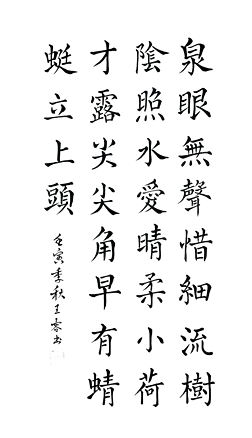 泉眼無聲惜細流樹
陰照水愛晴柔小荷
才露尖尖角早有蜻
蜓立上頭
壬寅季秋王书